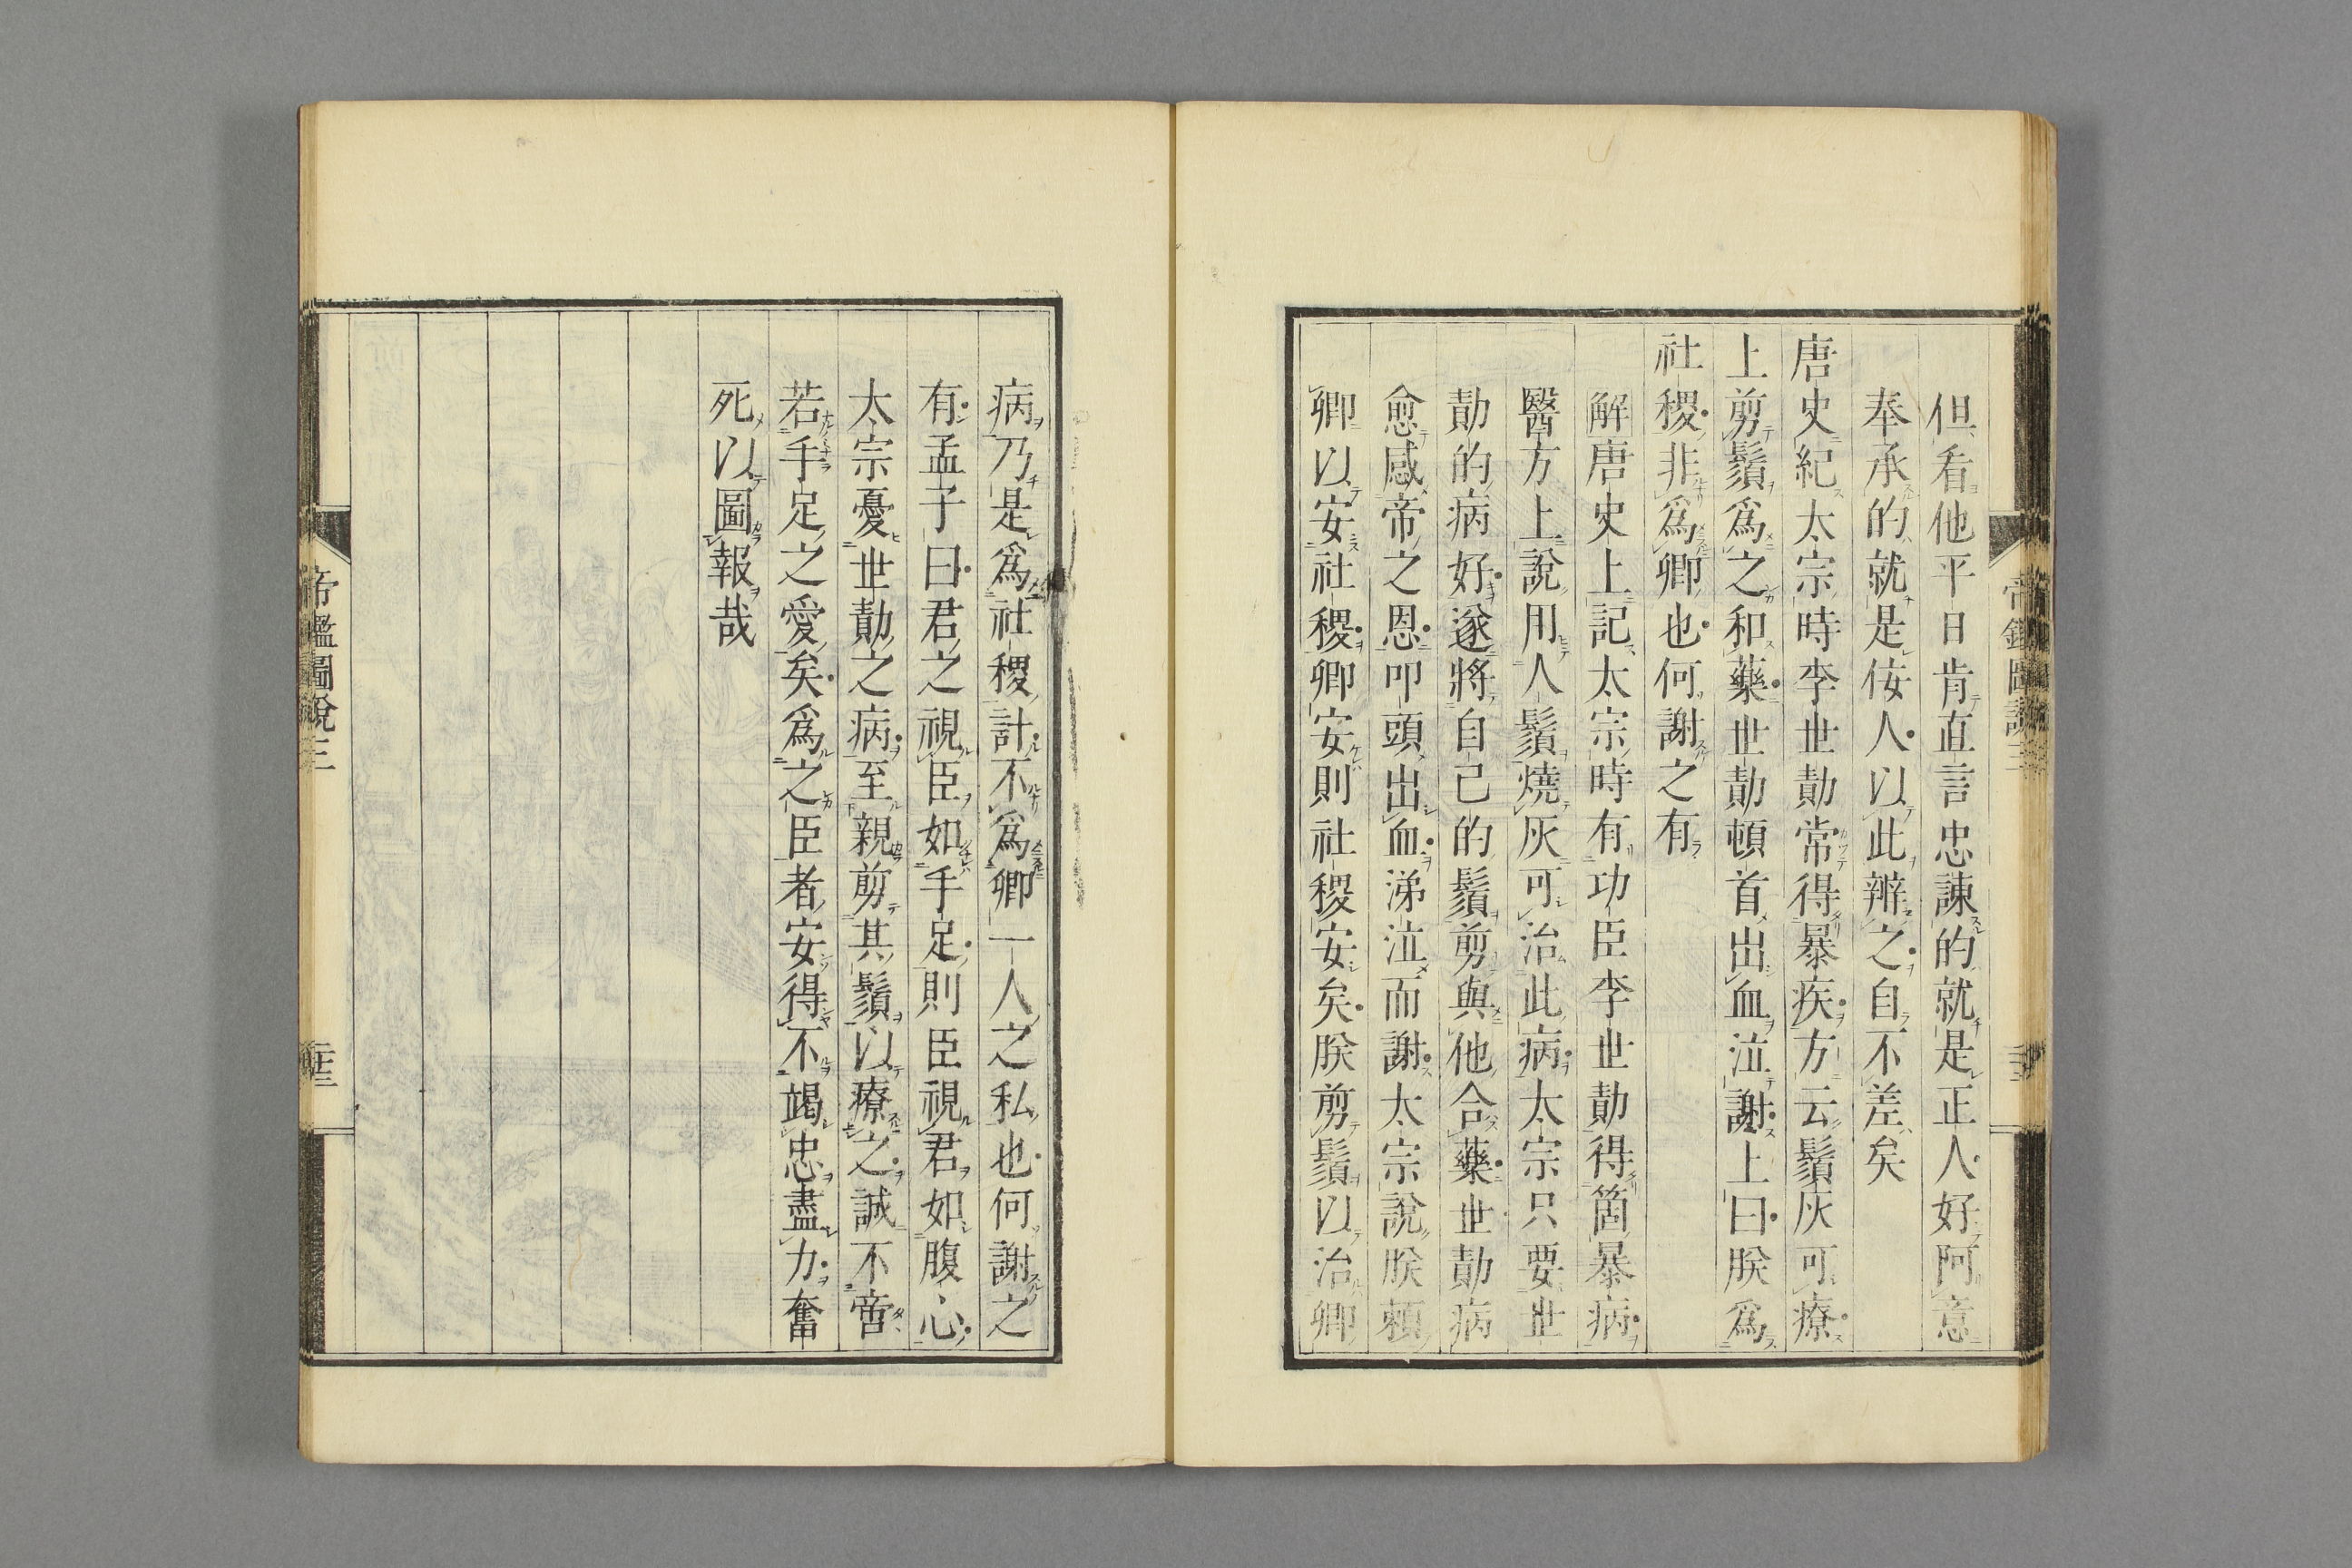 但看他平日肯直言忠諫的就是正人好阿意
奉承的就是佞人以此辨之自不差矣
唐史紀太宗時李世勣常得暴疾方云鬚灰可療
上剪鬚爲之和藥世勣頓首出血泣謝上曰朕爲
社稷非爲卿也何謝之有
解唐史上記太宗時有功臣李世勣得箇暴病
醫方上說用人鬚燒灰可治此病太宗只要世
勣的病好遂將自己的鬚剪與他合藥世勣病
愈感帝之恩叩頭出血涕泣而謝太宗說朕頼
卿以安社稷卿安則社稷安矣朕剪鬚以治卿
病乃是爲社稷計不爲卿一人之私也何謝之
有孟子曰君之視臣如手足則臣視君如腹心
太宗憂世勣之病至親剪其鬚以療之誠不啻
若手足之愛矣爲之臣者安得不竭忠盡力奮
死以圖報哉
帝鑑圖說三